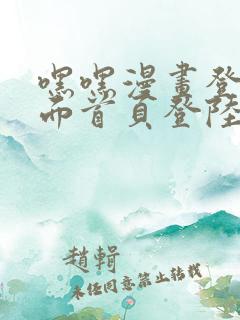 嘿嘿漫畫登
面首頁登陸
趙輯
未经同意禁止转载